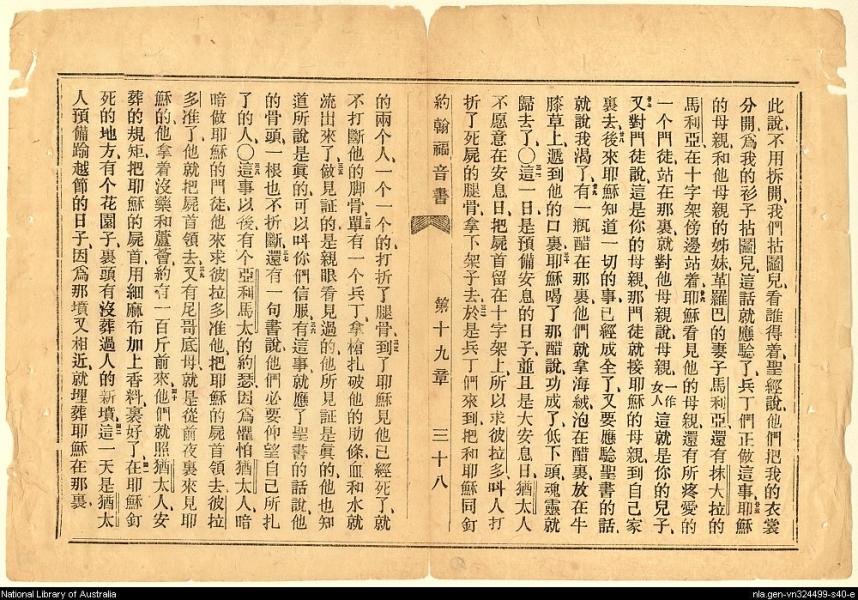 此說、不用拆開、我們拈鬮兒、看誰得着、聖經說、他們把我的衣裳
分開、爲我的衫子拈鬮兒、這話就應驗了、兵丁們正做這事、耶穌
的母親、和他母親的姊妹革羅巴的妻子馬利亞、還有抹大拉的
馬利亞、在十字架傍邊站着、耶穌看見他的母親、還有所疼愛的
一個門徒、站在那裏、就對他母親說、母親、一作女人這就是你的兒子、
又對門徒說、這是你的母親、那門徒就接耶穌的母親、到自己家
裏去、後來耶穌知道一切的事、已經成全了、又要應驗聖書的話、
就說我渴了、有一瓶醋在那裏、他們就拿海絨、泡在醋裏、放在牛
膝草上、遞到他的口裏、耶穌喝了那醋、說、功成了、低下頭、魂靈就
歸去了、〇這一日是預備安息的日子、並且是大安息日、猶太人
不愿意在安息日、把屍首留在十字架上、所以求彼拉多、叫人打
折了死屍的腿骨、拿下架子去、於是兵丁們來到、把和耶穌同釘
約翰福音書 第十九章 三十八
的兩個人、一個一個的打折了腿骨、到了耶穌、見他已經死了、就
不打斷他的脚骨、單有一個兵丁、拿槍扎破他的肋條、血和水就
流出來了、做見証的、是親眼看見過的、他所見証是眞的、他也知
道所說是眞的、可以叫你們信服、有這事、就應了聖書的話說、他
的骨頭、一根也不折斷、還有一句書說、他們必要仰望自己所扎
了的人、〇這事以後、有個亞利馬太的約瑟、因爲懼怕猶太人、暗
暗做耶穌的門徒、他來求彼拉多、准他把耶穌的屍首領去、彼拉
多准了、他就把屍首領去、又有尼哥底母、就是從前夜裏來見耶
穌的、他拿着沒藥和蘆薈、約有一百斤前來、他們就照猶太人安
葬的規矩、把耶穌的屍首、用細麻布加上香料裹好了、在耶穌釘
死的地方、有個花園子、裏頭有沒葬過人的新墳、這一天是猶太
人預備踰越節的日子、因爲那墳又相近、就埋葬耶穌在那裏、
National Library of Australia
nla.gen-vn324499-s40-e